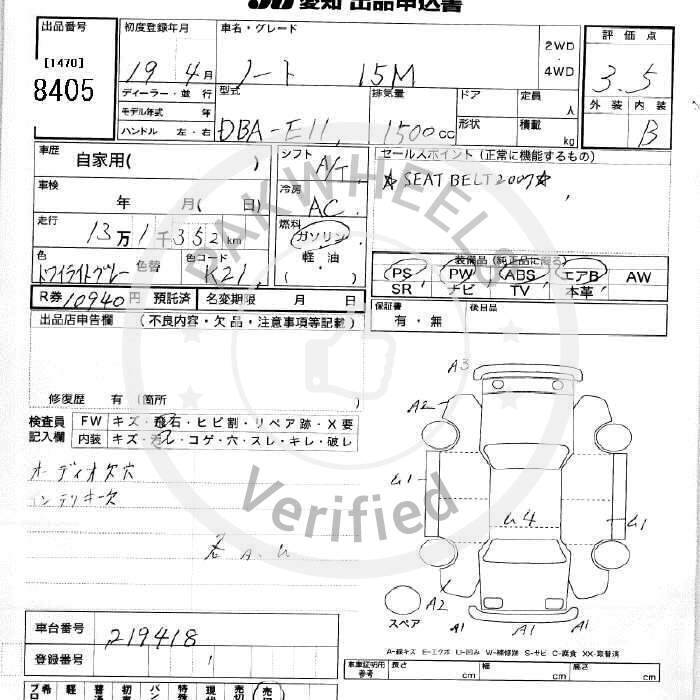 愛知 出品申込書
出品番号
[1470]
8405
初度登録年月
19 4月
車名・グレード
ノート 15M
2WD
4WD
評価点
3.5
外装 内装
B
ディーラー・並行
モデル年式 年
ハンドル 左・右
型式
DBA-E11
排気量
1500cc
ドア
形状
定員 人
積載 kg
車歴
自家用( )
車検 年 月( 日)
走行
13万1千352km
色
トワイライトグレー
色替
色コード
K21
シフト
A/T
冷房
AC
燃料
ガソリン
軽・油
( )
セールスポイント(正常に機能するもの)
☆SEAT BELT 2007☆
装備品(純正品に限る)
PS PW ABS エアB AW
SR ナビ TV 本革
R券 10940円 預託済 名変期限 月 日
保証書
有・無
後日品
出品店申告欄 (不良内容・欠品・注意事項等記載)
修復歴 有(箇所 )
検査員
記入欄
FW キズ・飛石・ヒビ割・リペア跡・X要
内装 キズ・汚レ・コゲ・穴・スレ・キレ・破レ
オーディオ欠穴
インテリキー欠
A3
A2
U1
U4
U1
A2
A1
A1
A1
スペア
A-線キズ E-エクボ U-凹み W-補修跡 S-サビ C-腐食 XX-取替済
車台番号 219418
登録番号
車庫証明用
参考
長さ cm
幅 cm
高さ cm
希 軽 普通 初 パン 特殊 現状 売切
PAKWHEELS
Verified